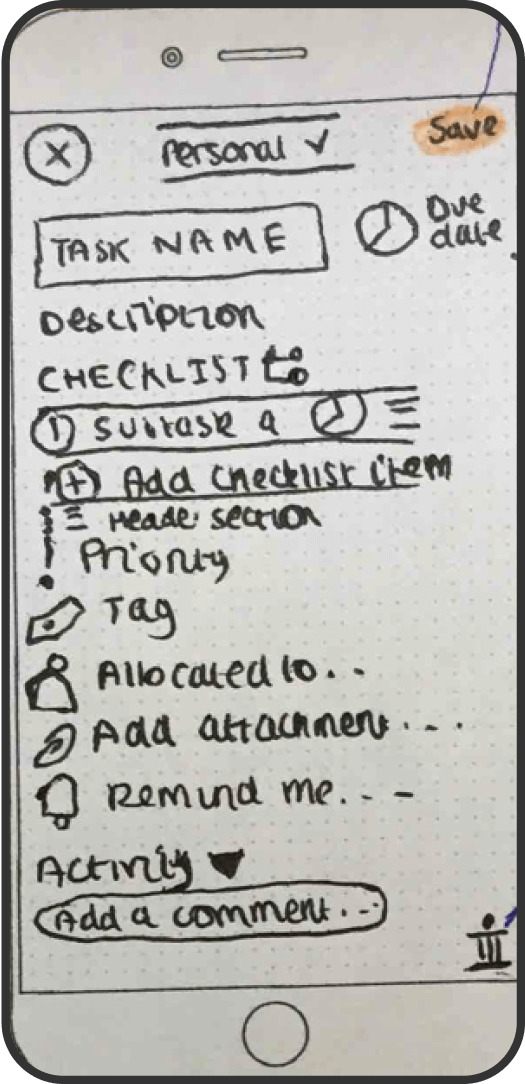 Save
Personal
TASK NAME
Due
date
Description
CHECKLIST
1 Subtask a
+ Add checklist item
Header section
Priority
Tag
Allocated to...
Add attachment...
Remind me...
Activity
Add a comment...